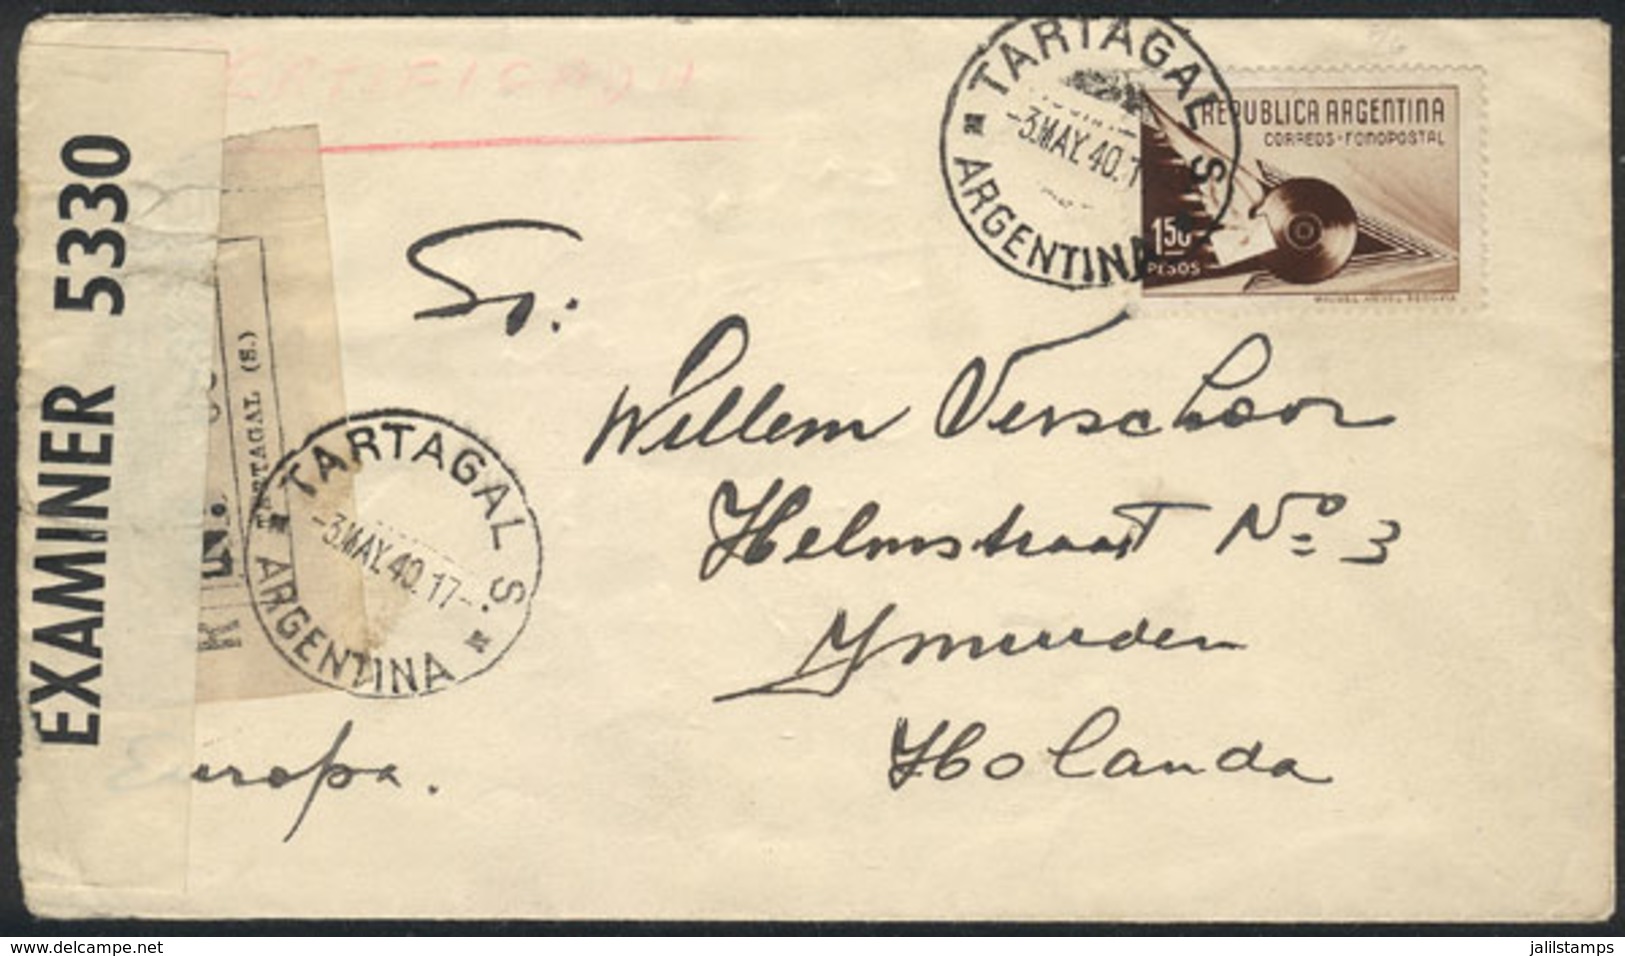 CERTIFICADA
TARTAGAL S.
-3.MAY.40.1
ARGENTINA
REPUBLICA ARGENTINA
CORREOS-FONOPOSTAL
1.50
PESOS
EXAMINER 5330
TARTAGAL (S.)
TARTAGAL S.
-3.MAY.40.17-
ARGENTINA
Sr:
Willem Verschoor
Helmstraat Nº 3
Ymuiden
Holanda
Europa.
www.delcampe.net
jalilstamps